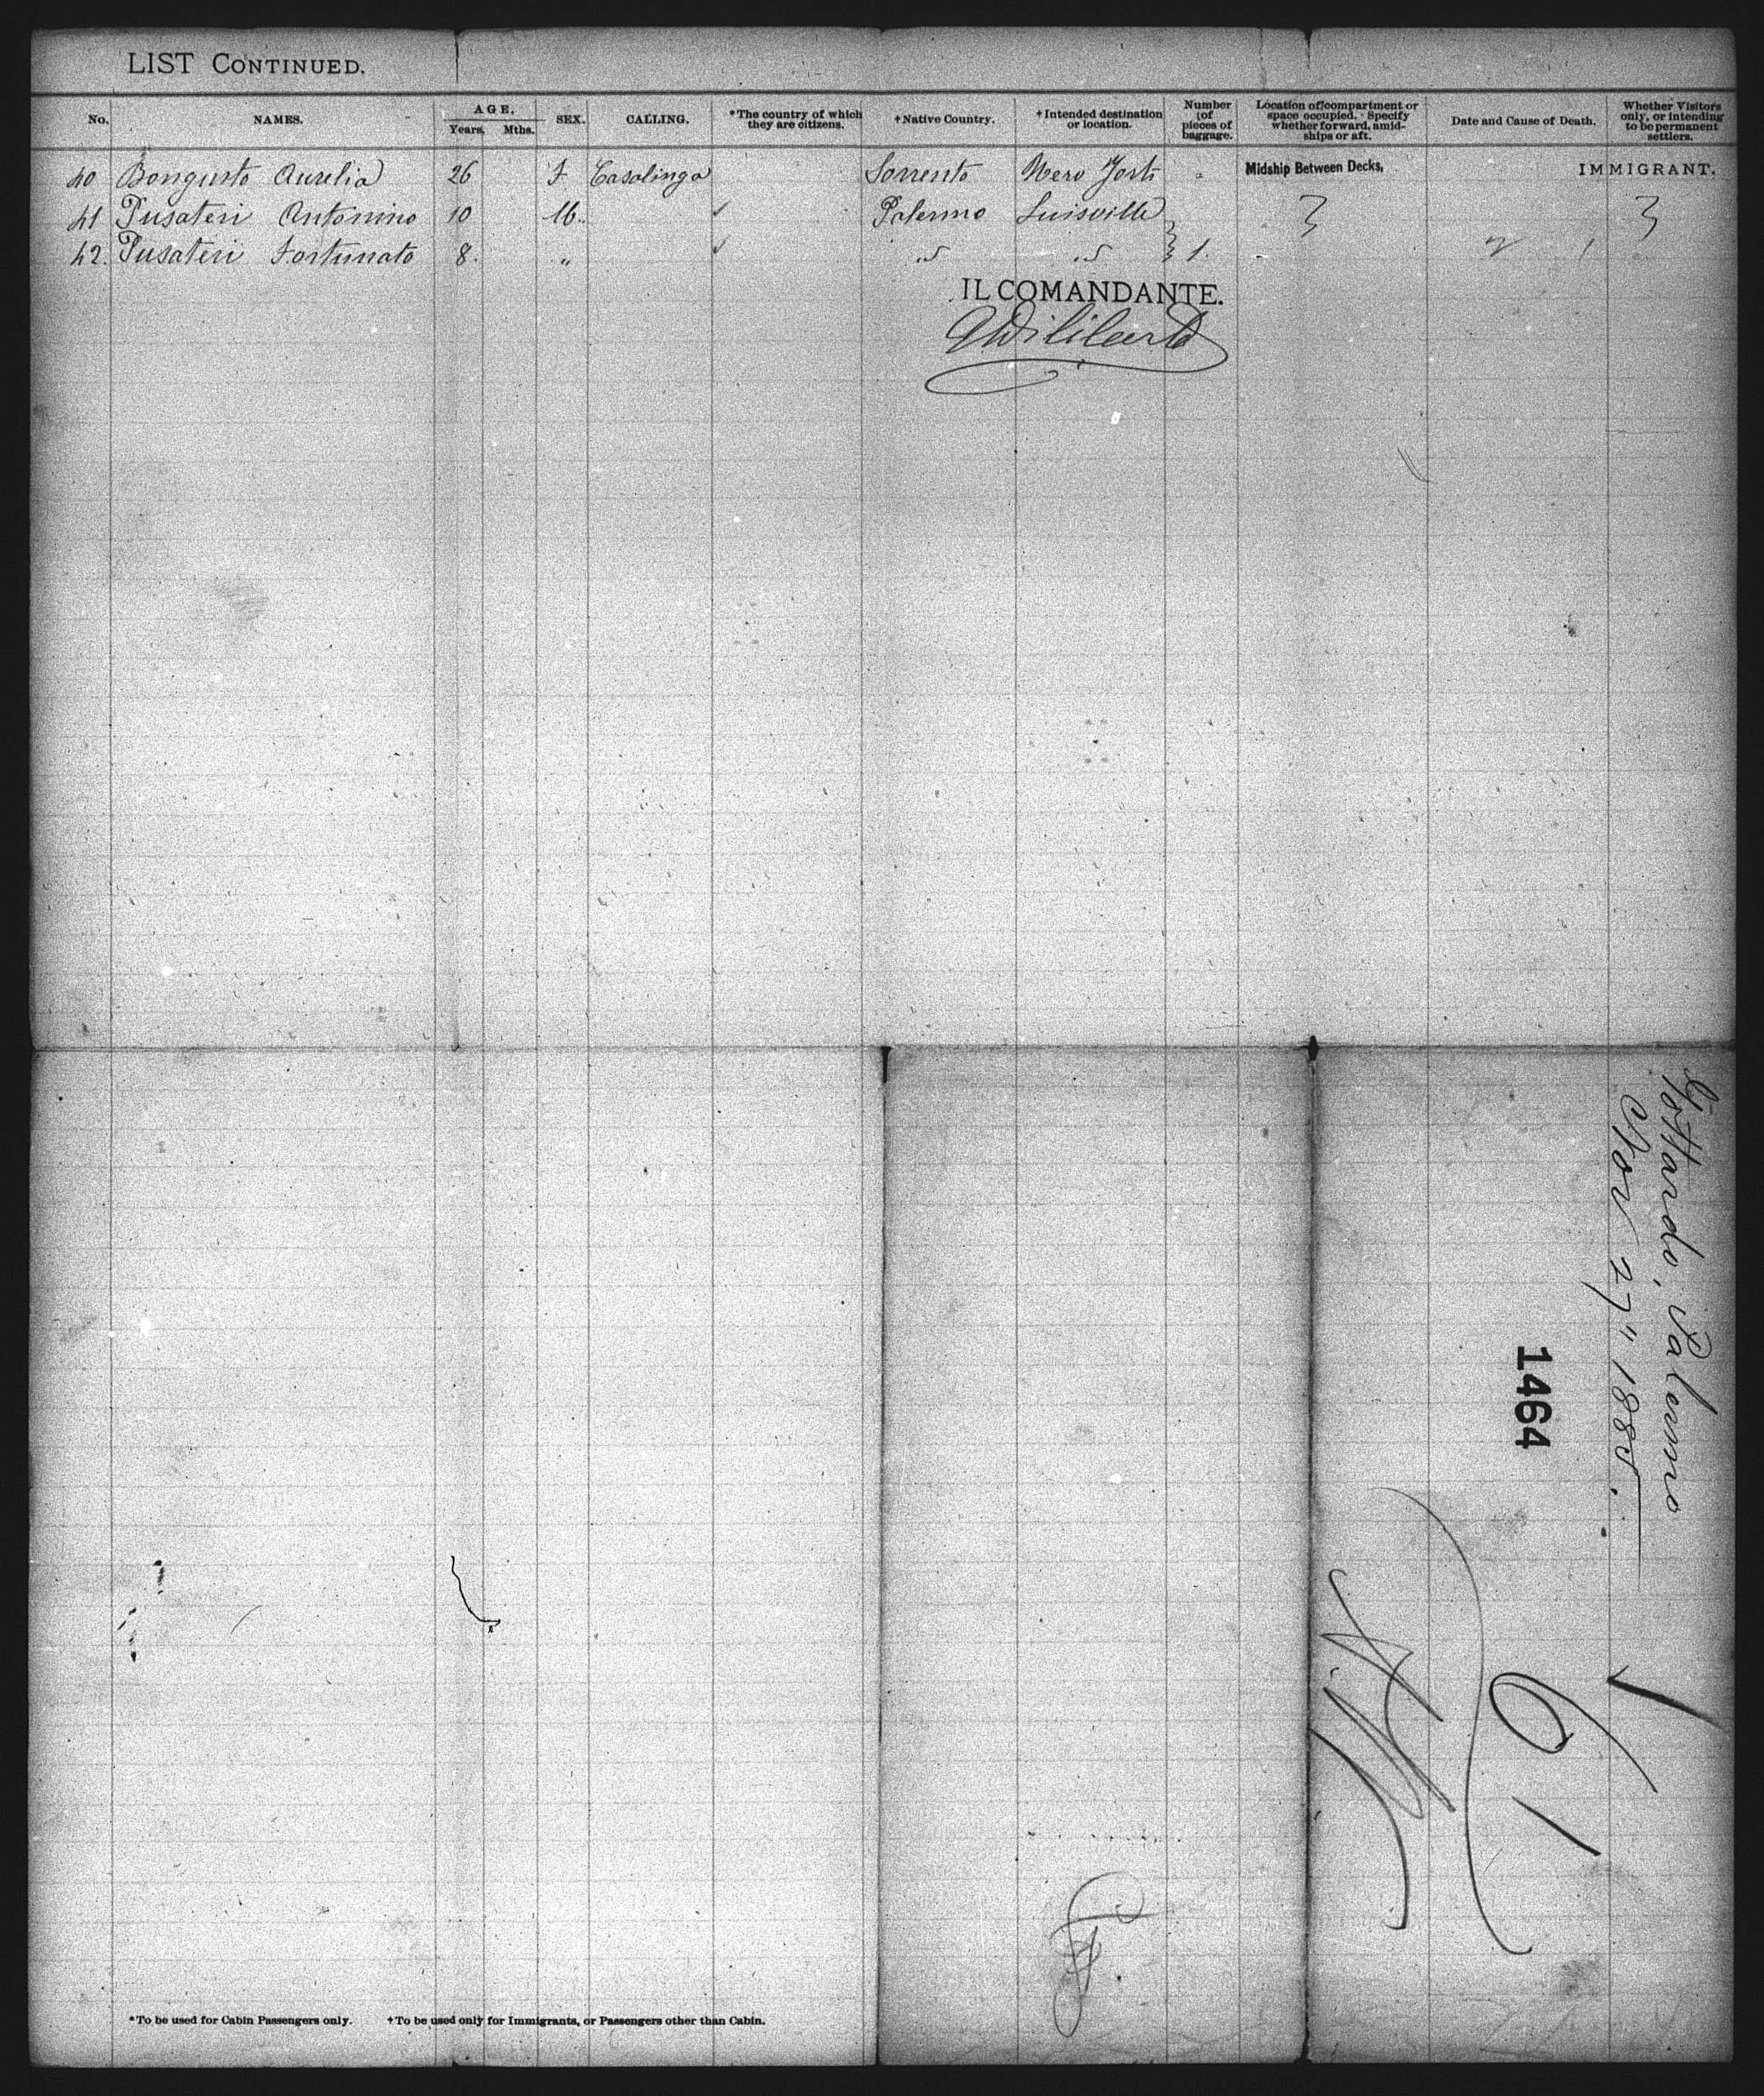 LIST CONTINUED.
No. NAMES. AGE. Years. Mths. SEX. CALLING. *The country of which they are citizens. †Native Country. †Intended destination or location. Number of pieces of baggage. Location of compartment or space occupied. Specify whether forward, amidships or aft. Date and Cause of Death. Whether Visitors only, or intending to be permanent settlers.
40 Bongusto Aurelia 26 F Casalinga Sorrento New York " Midship Between Decks, IMMIGRANT.
41 Pusateri Antonino 10 M. Palermo Luisville
42. Pusateri Fortunato 8. " " " 1.
IL COMANDANTE.
Gottardo, Palermo
Nov 27" 1885.
1464
*To be used for Cabin Passengers only. †To be used only for Immigrants, or Passengers other than Cabin.